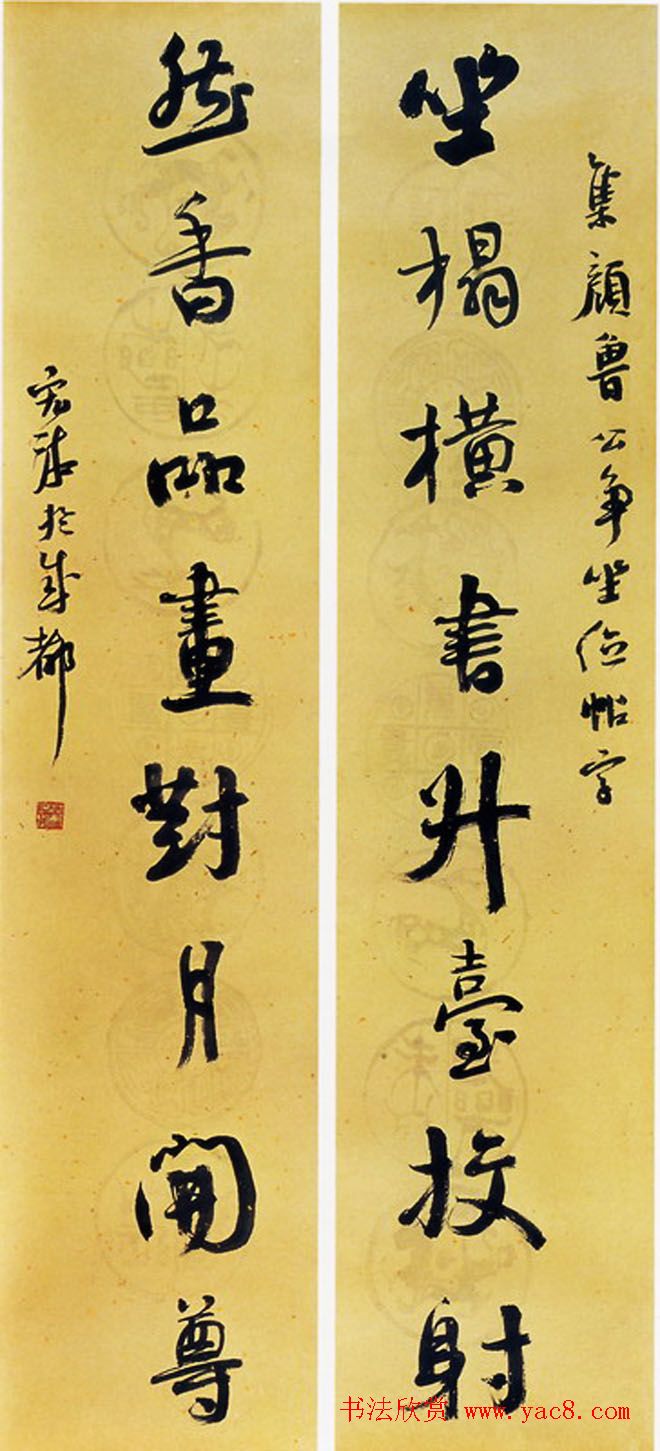 集顏魯公争坐位帖字
坐榻横書升臺校射
然香品畫對月開尊
於成都
书法欣赏 www.yac8.com